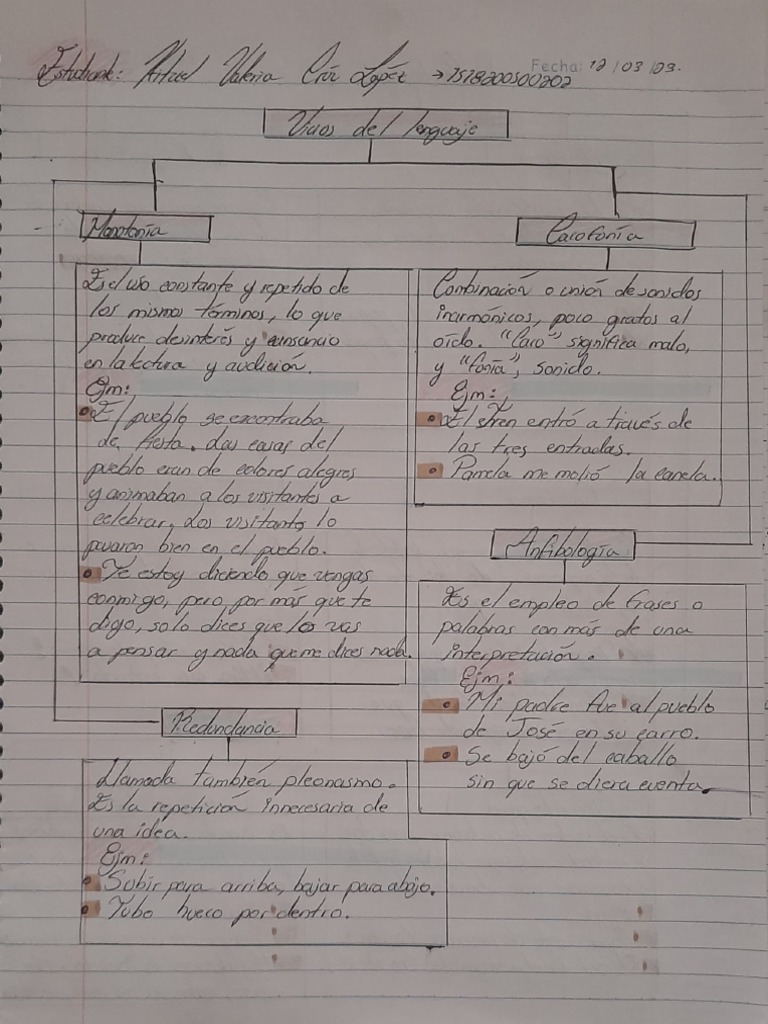 Estudiante: Valeria Cruz López → 1518200500202
Fecha: 12/03/23.
Vicios del lenguaje
Monotonía
Es el uso constante y repetido de
los mismos términos, lo que
produce desinterés y cansancio
en la lectura y audición.
Ejm:
El pueblo se encontraba
de fiesta. Las casas del
pueblo eran de colores alegres
y animaban a los visitantes a
celebrar, Los visitantes lo
pasaron bien en el pueblo.
Te estoy diciendo que vengas
conmigo, pero por más que te
digo, solo dices que lo vas
a pensar y nada que me dices nada.
Cacofonía
Combinación o unión de sonidos
inarmónicos, poco gratos al
oído. "Caco" significa malo,
y "fonía", sonido.
Ejm:
El tren entró a través de
las tres entradas.
Pamela me molió la canela.
Anfibología
Es el empleo de frases o
palabras con más de una
interpretación.
Ejm:
Mi padre fue al pueblo
de José en su carro.
Se bajó del caballo
sin que se diera cuenta.
Redundancia
Llamada también pleonasmo.
Es la repetición innecesaria de
una idea.
Ejm:
Subir para arriba, bajar para abajo.
Tubo hueco por dentro.